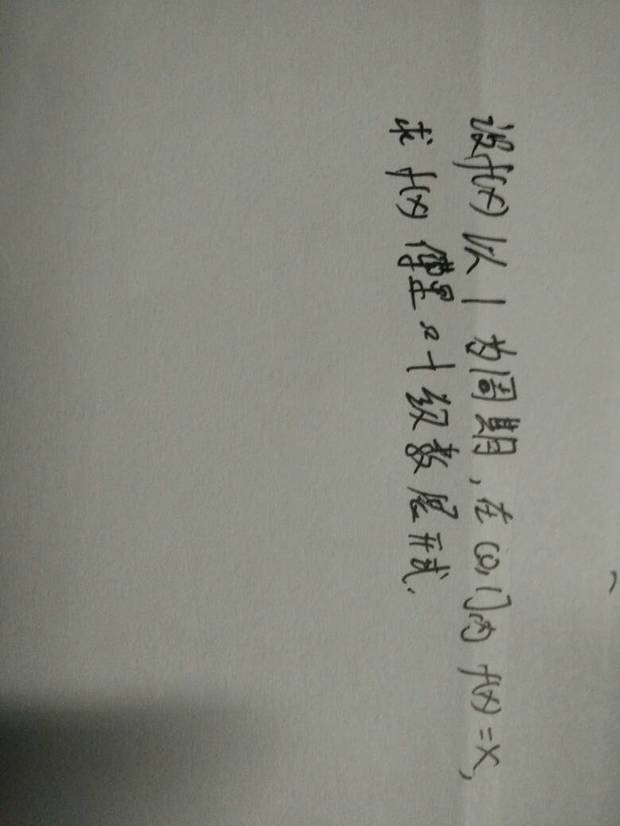 设f(x)以1为周期,在(0,1]内f(x)=x,
求f(x)傅里叶级数展开式.